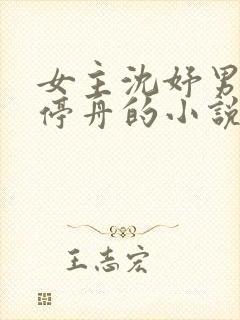 女主沈妤男
停舟的小說
王志宏